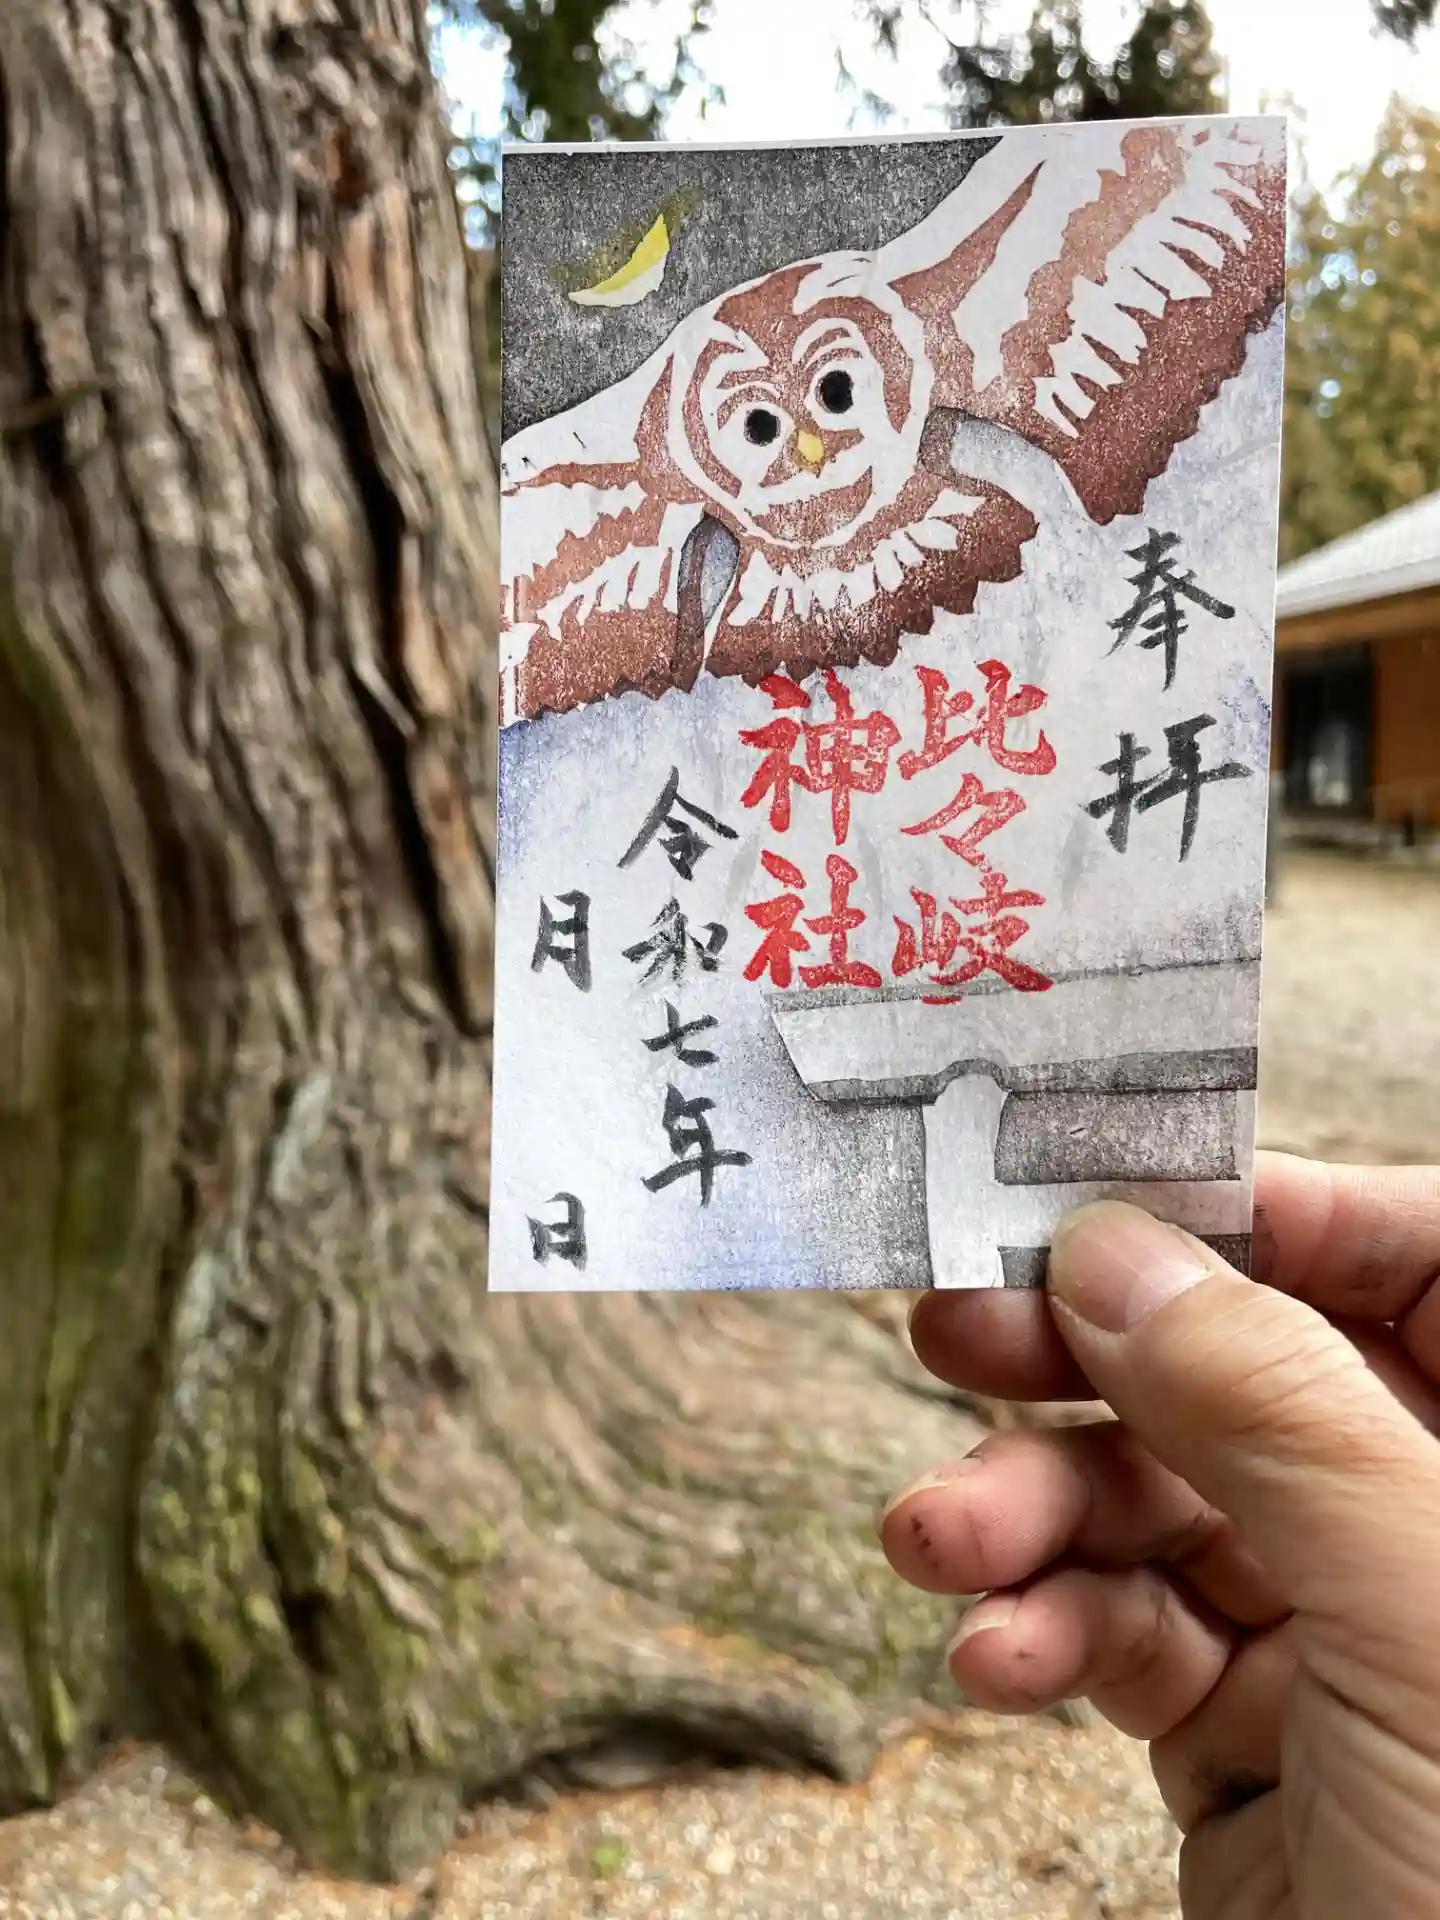 奉拝
比々岐
神社
令和七年
月 日